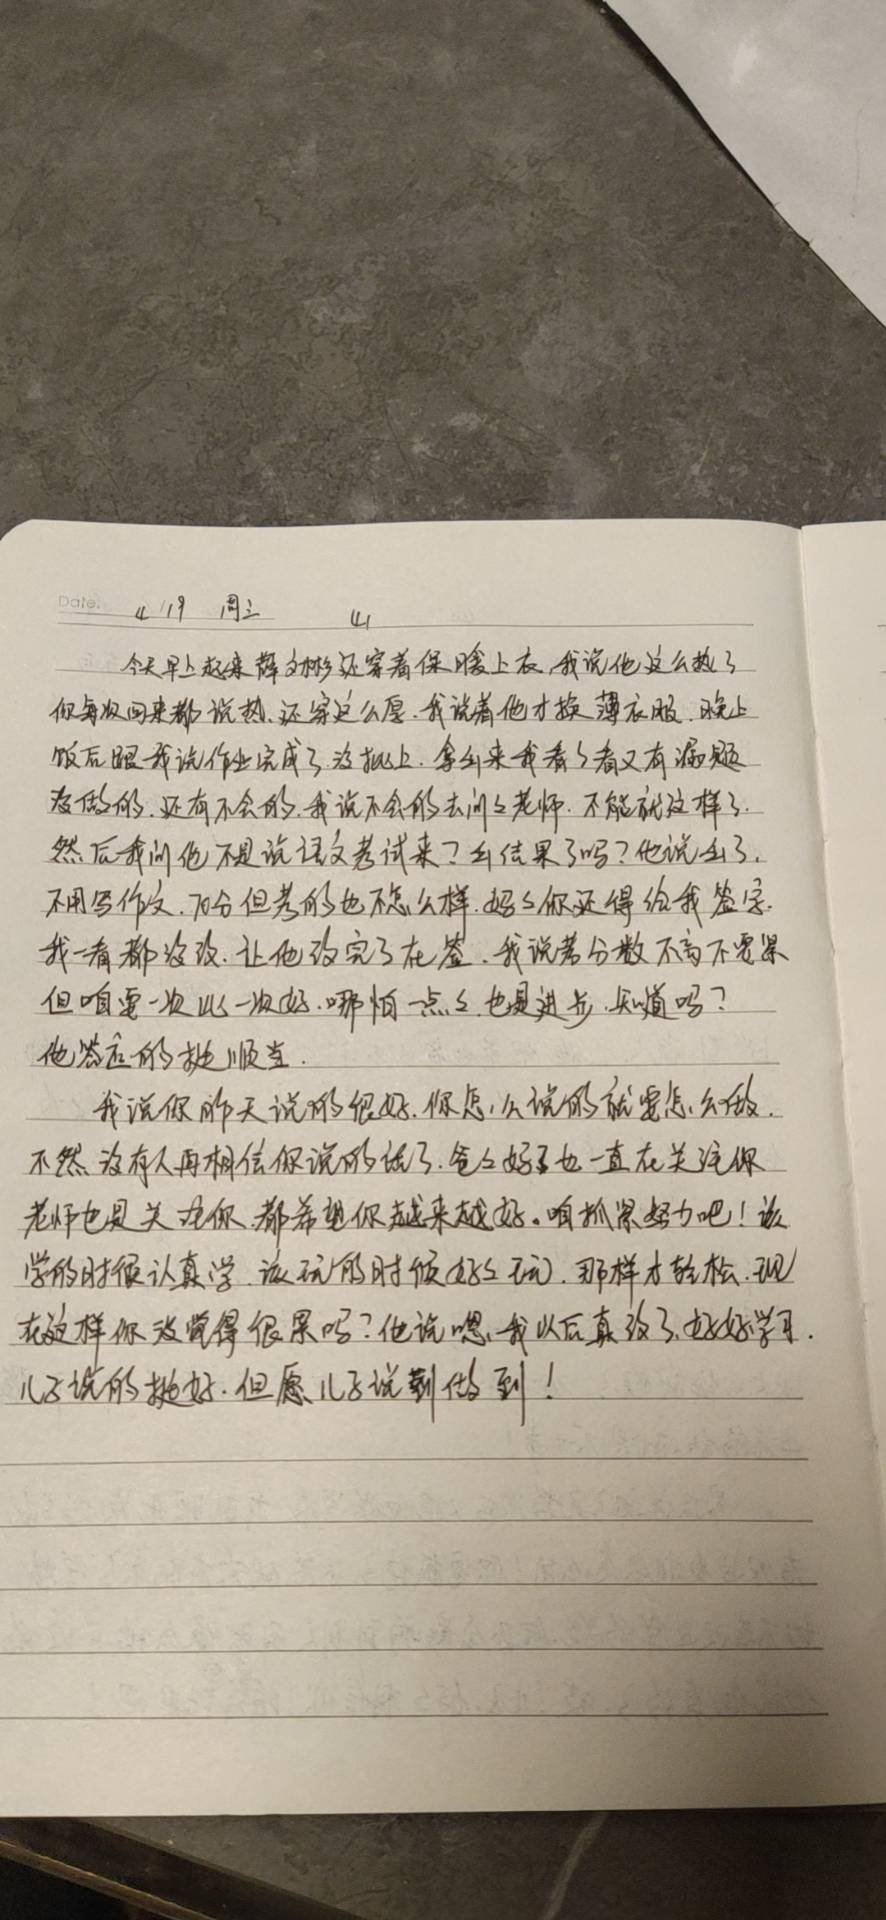 Date: 4/19 周三 41
今天早上起来薛文彬还穿着保暖上衣,我说他这么热了
你每次回来都说热,还穿这么厚.我说着他才换薄衣服.晚上
饭后跟我说作业完成了.没批上.拿出来我看了看又有漏题
没做的.还有不会的.我说不会的去问问老师.不能就这样了.
然后我问他不是说语文考试来?出结果了吗?他说出了,
不用写作文.70分但考的也不怎么样.妈妈你还得给我签字.
我一看都没改.让他改完了在签.我说考分数不高不要紧
但咱要一次比一次好.哪怕一点点也是进步.知道吗?
他答应的挺顺当.
我说你昨天说的很好.你怎么说的就要怎么做.
不然没有人再相信你说的话了.爸爸妈妈也一直在关注你
老师也是关注你.都希望你越来越好。咱抓紧努力吧!该
学的时候认真学.该玩的时候好好玩.那样才轻松.现
在这样你没觉得很累吗?他说嗯,我以后真改了.好好学习.
儿子说的挺好.但愿儿子说到做到!